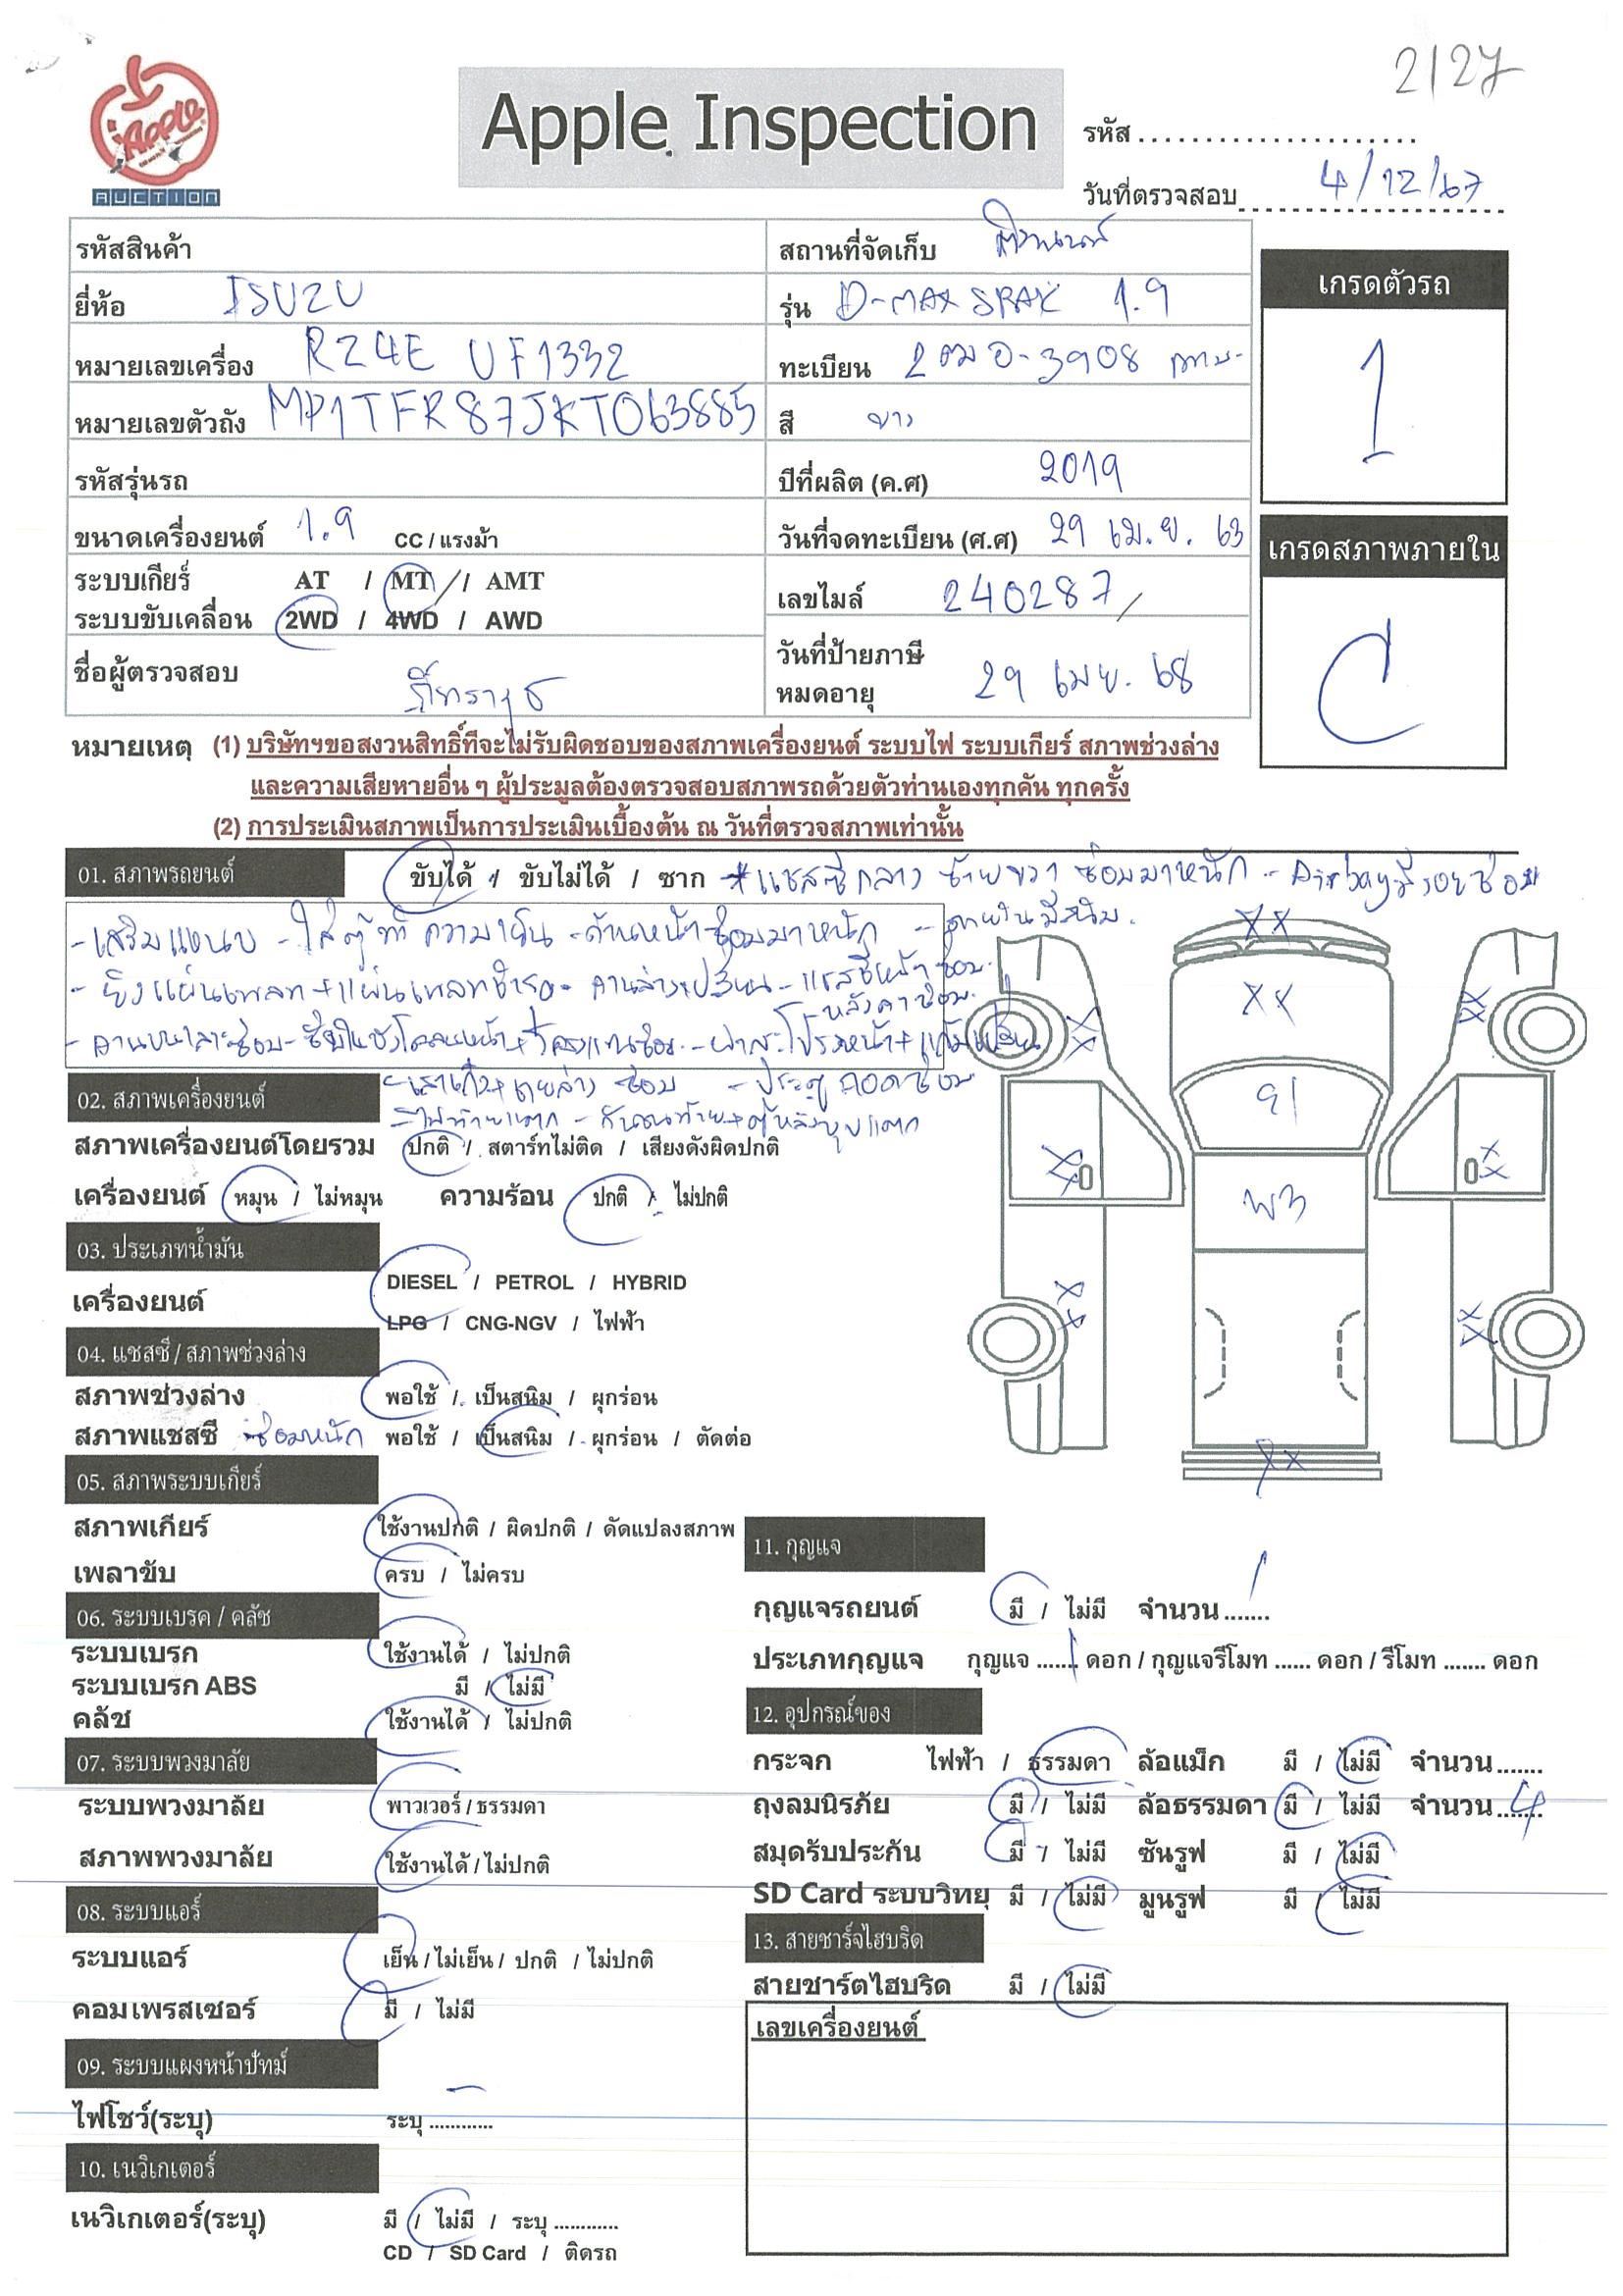 2/27
Apple
AUCTION
Apple Inspection
รหัส ....................
วันที่ตรวจสอบ 4/12/67
รหัสสินค้า
สถานที่จัดเก็บ
ยี่ห้อ ISUZU
รุ่น D-MAX SPARK 1.9
เกรดตัวรถ
1
หมายเลขเครื่อง RZ4E UF1332
ทะเบียน 2ฒอ-3908 กทม.
หมายเลขตัวถัง MP1TFR87JKT063885
สี ขาว
รหัสรุ่นรถ
ปีที่ผลิต (ค.ศ) 2019
ขนาดเครื่องยนต์ 1.9 CC / แรงม้า
วันที่จดทะเบียน (ศ.ศ) 29 เม.ย. 63
เกรดสภาพภายใน
C
ระบบเกียร์ AT / MT / AMT
ระบบขับเคลื่อน 2WD / 4WD / AWD
เลขไมล์ 240287
ชื่อผู้ตรวจสอบ
วันที่ป้ายภาษี
หมดอายุ 29 เมย. 68
หมายเหตุ (1) บริษัทฯขอสงวนสิทธิ์ที่จะไม่รับผิดชอบของสภาพเครื่องยนต์ ระบบไฟ ระบบเกียร์ สภาพช่วงล่าง
และความเสียหายอื่น ๆ ผู้ประมูลต้องตรวจสอบสภาพรถด้วยตัวท่านเองทุกคัน ทุกครั้ง
(2) การประเมินสภาพเป็นการประเมินเบื้องต้น ณ วันที่ตรวจสภาพเท่านั้น
01. สภาพรถยนต์ ขับได้ / ขับไม่ได้ / ซาก * แชสซีกลาง ซ้ายขวา ซ่อมมาหนัก - Airbagมีรอยซ่อม
- เสริมแหนบ - ใส่ตู้ทำความเย็น - ด้านหน้าซ่อมมาหนัก - ภายในมีสนิม.
- ยิงแผ่นเพลท + แผ่นเพลทชำรุด - คานล่างเปลี่ยน - แชสซีหน้าซ่อม.
- หลังคาซ่อม.
- ฝากระโปรงหน้า + แก้มเปลี่ยน
XX
XX
91
W3
02. สภาพเครื่องยนต์ - ประตูถอดซ่อม
- ไฟท้ายแตก
สภาพเครื่องยนต์โดยรวม ปกติ / สตาร์ทไม่ติด / เสียงดังผิดปกติ
เครื่องยนต์ หมุน / ไม่หมุน ความร้อน ปกติ / ไม่ปกติ
03. ประเภทน้ำมัน
เครื่องยนต์ DIESEL / PETROL / HYBRID
LPG / CNG-NGV / ไฟฟ้า
04. แชสซี / สภาพช่วงล่าง
สภาพช่วงล่าง พอใช้ / เป็นสนิม / ผุกร่อน
สภาพแชสซี ซ่อมหนัก พอใช้ / เป็นสนิม / ผุกร่อน / ตัดต่อ
XX
05. สภาพระบบเกียร์
สภาพเกียร์ ใช้งานปกติ / ผิดปกติ / ดัดแปลงสภาพ
เพลาขับ ครบ / ไม่ครบ
06. ระบบเบรค / คลัช
ระบบเบรก ใช้งานได้ / ไม่ปกติ
ระบบเบรก ABS มี / ไม่มี
คลัช ใช้งานได้ / ไม่ปกติ
07. ระบบพวงมาลัย
ระบบพวงมาลัย พาวเวอร์ / ธรรมดา
สภาพพวงมาลัย ใช้งานได้ / ไม่ปกติ
08. ระบบแอร์
ระบบแอร์ เย็น / ไม่เย็น / ปกติ / ไม่ปกติ
คอมเพรสเซอร์ มี / ไม่มี
09. ระบบแผงหน้าปัทม์
ไฟโชว์(ระบุ) ระบุ ............
10. เนวิเกเตอร์
เนวิเกเตอร์(ระบุ) มี / ไม่มี / ระบุ ............
CD / SD Card / ติดรถ
11. กุญแจ
กุญแจรถยนต์ มี / ไม่มี จำนวน ....... 1
ประเภทกุญแจ กุญแจ ...1... ดอก / กุญแจรีโมท ...... ดอก / รีโมท ....... ดอก
12. อุปกรณ์ของ
กระจก ไฟฟ้า / ธรรมดา ล้อแม็ก มี / ไม่มี จำนวน .......
ถุงลมนิรภัย มี / ไม่มี ล้อธรรมดา มี / ไม่มี จำนวน ....... 4
สมุดรับประกัน มี / ไม่มี ซันรูฟ มี / ไม่มี
SD Card ระบบวิทยุ มี / ไม่มี มูนรูฟ มี / ไม่มี
13. สายชาร์จไฮบริด
สายชาร์ตไฮบริด มี / ไม่มี
เลขเครื่องยนต์